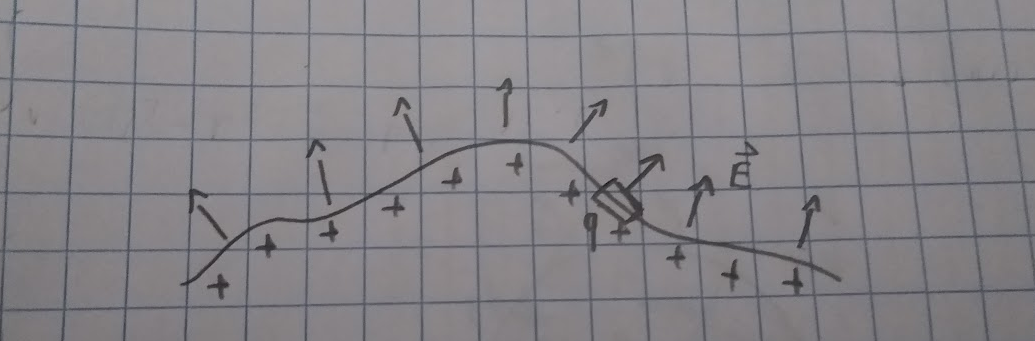 E⃗
q
+ + + + + + + + + + +